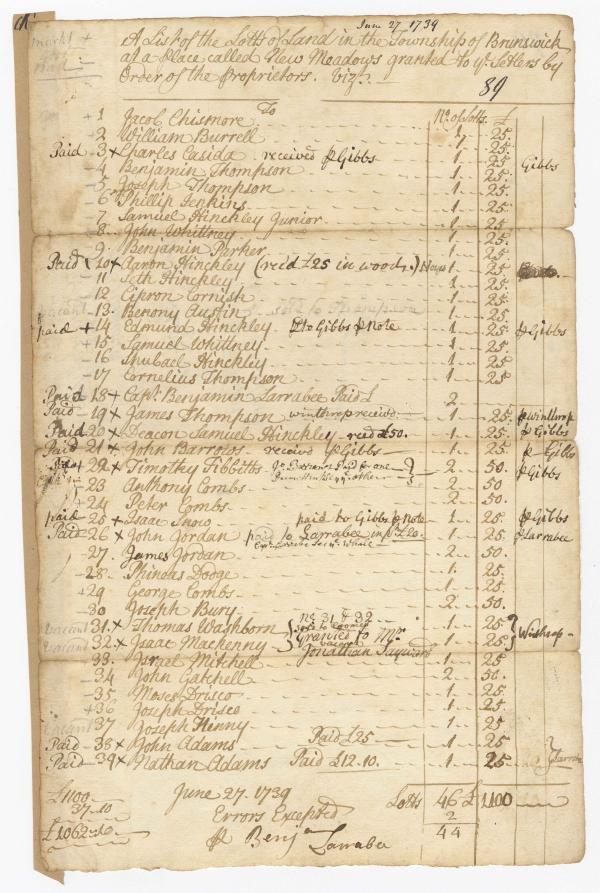 June 27 1739
A List of the Lotts of Land in the Township of Brunswick
at a Place called New Meadows granted to ye Setlers by
Order of the Proprietors. Vizt.
89
To No. of Lotts. £
+ 1 Jacob Chismore 1 25.
2 William Burrell 1 25.
Paid 3 x Charles Casida received p Gibbs 1 25. Gibbs
4 Benjamin Thompson 1 25.
5 Joseph Thompson 1 25.
6 Phillip Jenkins 1 25.
7 Samuel Hinckley Junior 1 25.
8 John Whittney 1 25.
9 Benjamin Parker 1 25.
Paid 10 x Aaron Hinckley (recd £25 in wood.) 1 25.
11 Seth Hinckley 1 25.
12 Cipron Cornish 1 25.
vacant 13 Benony Austin sold to Thompson 1 25.
paid + 14 Edmund Hinckley to Gibbs p Note 1 25. p Gibbs
+ 15 Samuel Whittney 1 25.
16 Shubael Hinckley 1 25.
17 Cornelius Thompson 1 25.
Paid 18 x Capt. Benjamin Larrabee Paid £ 2
Paid 19 x James Thompson winthrop receivd 1 25. p winthrop
Paid 20 x Deacon Samuel Hinckley recd £50. 1 25. p Gibbs
Paid 21 x John Barrows receivd p Gibbs 1 25. p Gibbs
22 x Timothy Tibbitts 2 50. p Gibbs
23 Anthony Combs 2 50
+ 24 Peter Combs 2 50.
paid 25 x Isaac Snow paid to Gibbs p Note 1 25. p Gibbs
Paid 26 x John Jordan paid to Larrabee in p £20. 1 25. p Larrabee
27 James Jordan 2 50.
28 Phineas Dodge 1 25.
+ 29 George Combs 1 25.
30 Joseph Bury 2 50.
vacant 31 x Thomas Washborn No 31 & 32 1 25
vacant 32 x Isaac Mackenny Granted to Mr. 1 25 Winthrop
Jonathan Sayward
33 Israel Mitchell 1 25
34 John Gatchell 2 50.
35 Moses Drisco 1 25
+ 36 Joseph Drisco 1 25.
vacant 37 Joseph Henny 1 25
Paid 38 x John Adams Paid £25 1 25
Paid 39 x Nathan Adams Paid £12.10. 1 25
£1100 June 27. 1739 Lotts 46 £ 1100
37.10 Errors Excepted 2
£1062.10 44
p Benja Larrabee